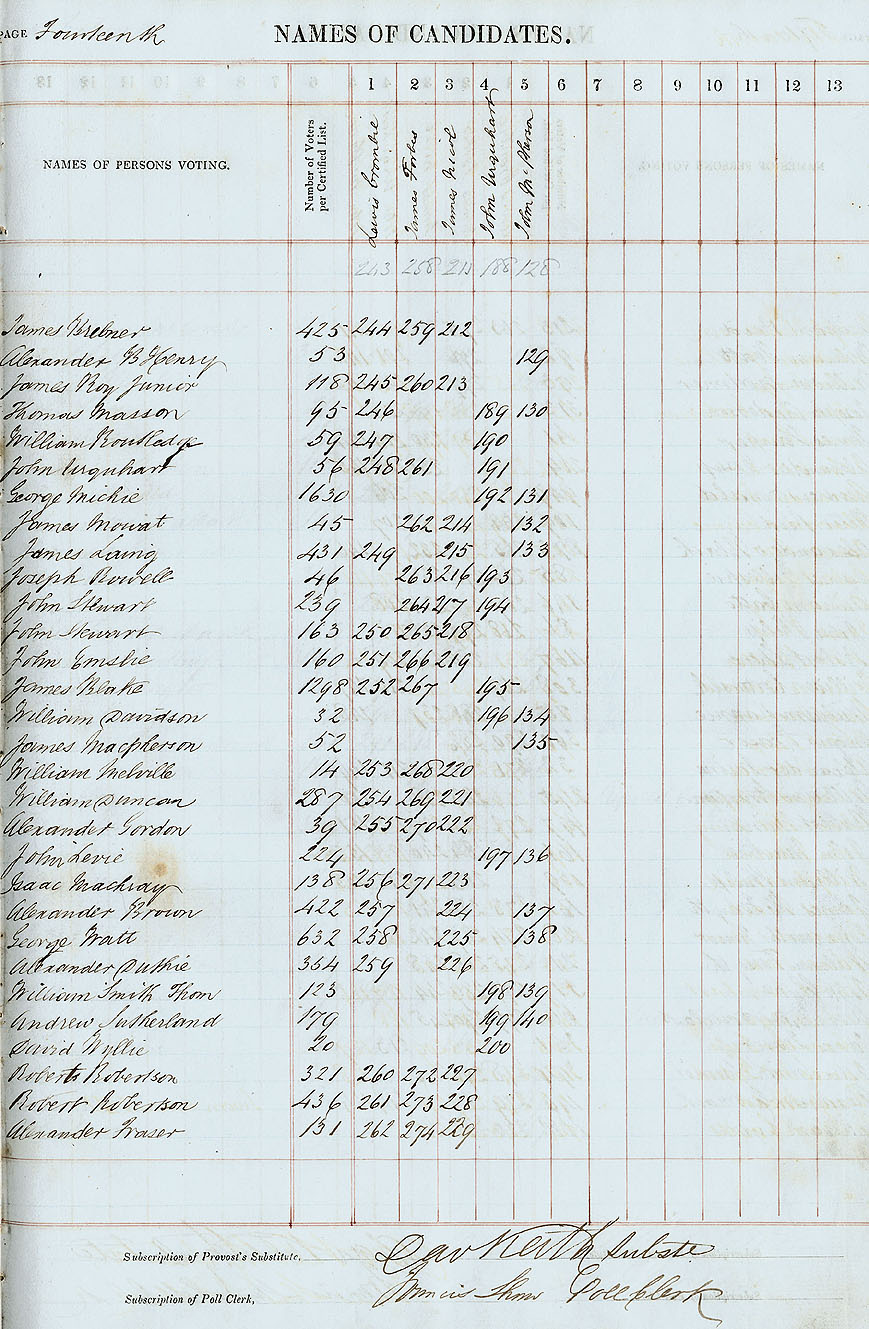 PAGE Fourteenth NAMES OF CANDIDATES.
1 2 3 4 5 6 7 8 9 10 11 12 13
NAMES OF PERSONS VOTING. Number of Voters per Certified List. Lewis Crombie James Forbes James Nicol John Urquhart John McPherson
243 258 211 188 128
James Brebner 425 244 259 212
Alexander B Henry 53 129
James Roy Junior 118 245 260 213
Thomas Masson 95 246 189 130
William Routledge 59 247 190
John Urquhart 56 248 261 191
George Michie 1630 192 131
James Mowat 45 262 214 132
James Laing 431 249 215 133
Joseph Rowell 46 263 216 193
John Stewart 239 264 217 194
John Stewart 163 250 265 218
John Emslie 160 251 266 219
James Blake 1298 252 267 195
William Davidson 32 196 134
James Macpherson 52 135
William Melville 14 253 268 220
William Duncan 287 254 269 221
Alexander Gordon 39 255 270 222
John Levie 224 197 136
Isaac Machray 138 256 271 223
Alexander Brown 422 257 224 137
George Watt 632 258 225 138
Alexander Duthie 354 259 226
William Smith Thom 123 198 139
Andrew Sutherland 179 199 140
David Wyllie 20 200
Robert Robertson 321 260 272 227
Robert Robertson 436 261 273 228
Alexander Fraser 131 262 274 229
Subscription of Provost's Substitute, Keith Subste
Subscription of Poll Clerk, Francis Shaw Poll Clerk